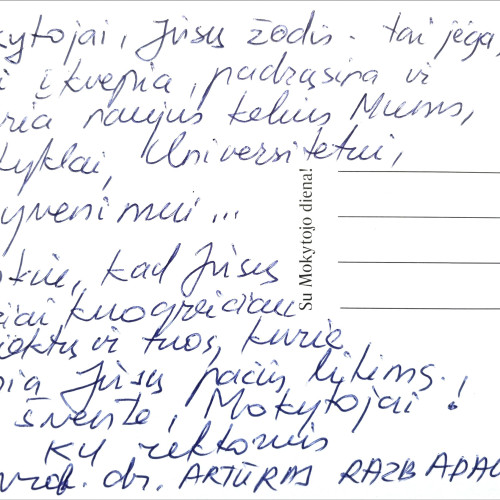 kytojai, Jūsų žodis - tai jėga,
i įkvepia, padrąsina ir
ria naujus kelius Mums,
kyklai, Universitetui,
yvenimui...
Su Mokytojo diena!
kiu, kad Jūsų
žiai kuogreičiau
iektų ir tuos, kurie
pia Jūsų pačių likimą.
švente, Mokytojai!
KU rektorius
prof. dr. ARTŪRAS RAZBADAU